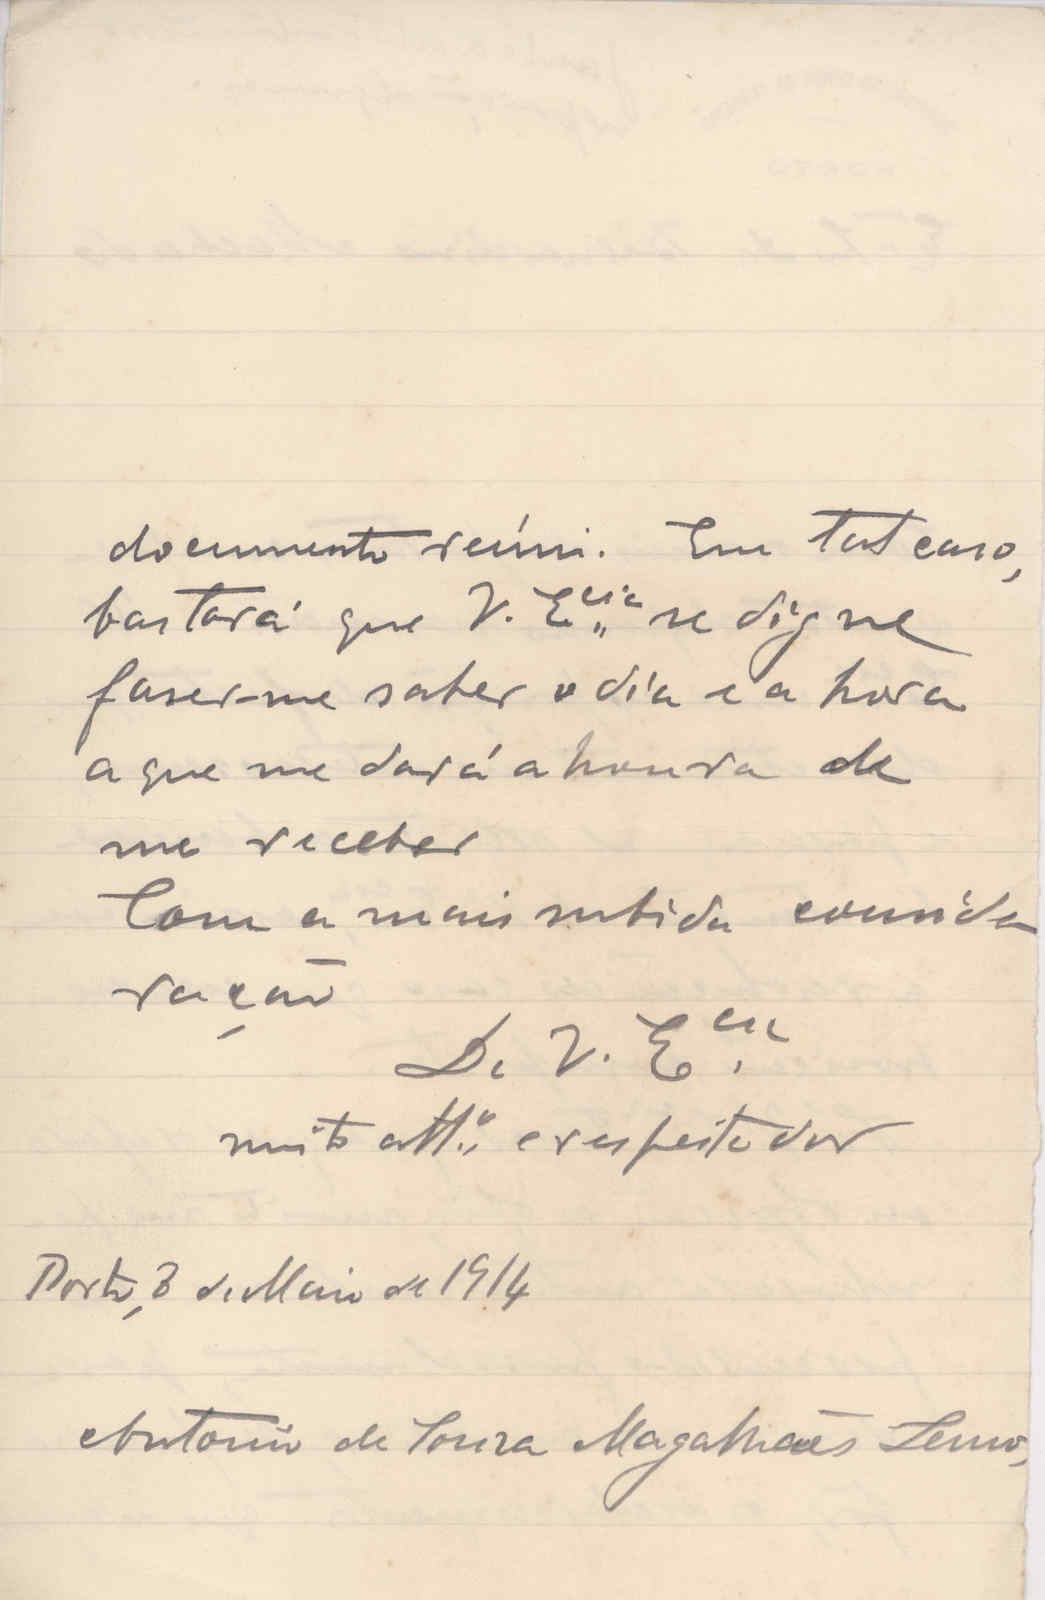 documento reúni. Em tal caso,
bastará que V. Ecia se digne
faser-me saber o dia e a hora
a que me dará a honra de
me receber
Com a mais subida conside
ração
De V. Ecia
muito attº e respeitador
Porto, 3 de Maio de 1914
Antonio de Souza Magalhães Lemos